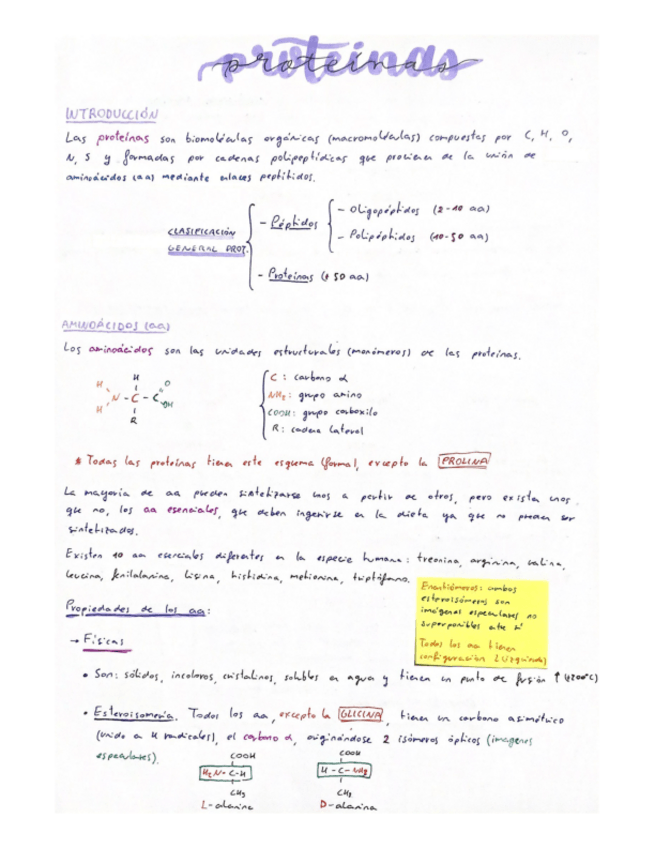 proteínas
INTRODUCCIÓN
Las proteínas son biomoléculas orgánicas (macromoléculas) compuestas por C, H, O,
N, S y formadas por cadenas polipeptídicas que provienen de la unión de
aminoácidos (aa) mediante enlaces peptídidos.
CLASIFICACIÓN
GENERAL PROT.
- Péptidos
- Oligopéptidos (2-10 aa)
- Polipéptidos (10-50 aa)
- Proteínas (+ 50 aa)
AMINOÁCIDOS (aa)
Los aminoácidos son las unidades estructurales (monómeros) de las proteínas.
H H O
N - C - C
H R OH
C : carbono α
NH2 : grupo amino
COOH : grupo carboxilo
R : cadena lateral
* Todas las proteínas tienen este esquema formal, excepto la PROLINA
La mayoría de aa pueden sintetizarse unos a partir de otros, pero existen unos
que no, los aa esenciales, que deben ingerirse en la dieta ya que no pueden ser
sintetizados.
Existen 10 aa esenciales diferentes en la especie humana: treonina, arginina, valina,
leucina, fenilalanina, lisina, histidina, metionina, triptófano.
Enantiómeros: ambos
estereoisómeros son
imágenes especulares no
superponibles entre sí
Todos los aa tienen
configuración L (izquierda)
Propiedades de los aa:
→ Físicas
• Son: sólidos, incoloros, cristalinos, solubles en agua y tienen un punto de fusión ↑ (>200°C)
• Esteroisomería. Todos los aa, excepto la GLICINA, tienen un carbono asimétrico
(unido a 4 radicales), el carbono α, originándose 2 isómeros ópticos (imágenes
especulares).
COOH COOH
H2N - C - H H - C - NH2
CH3 CH3
L-alanina D-alanina